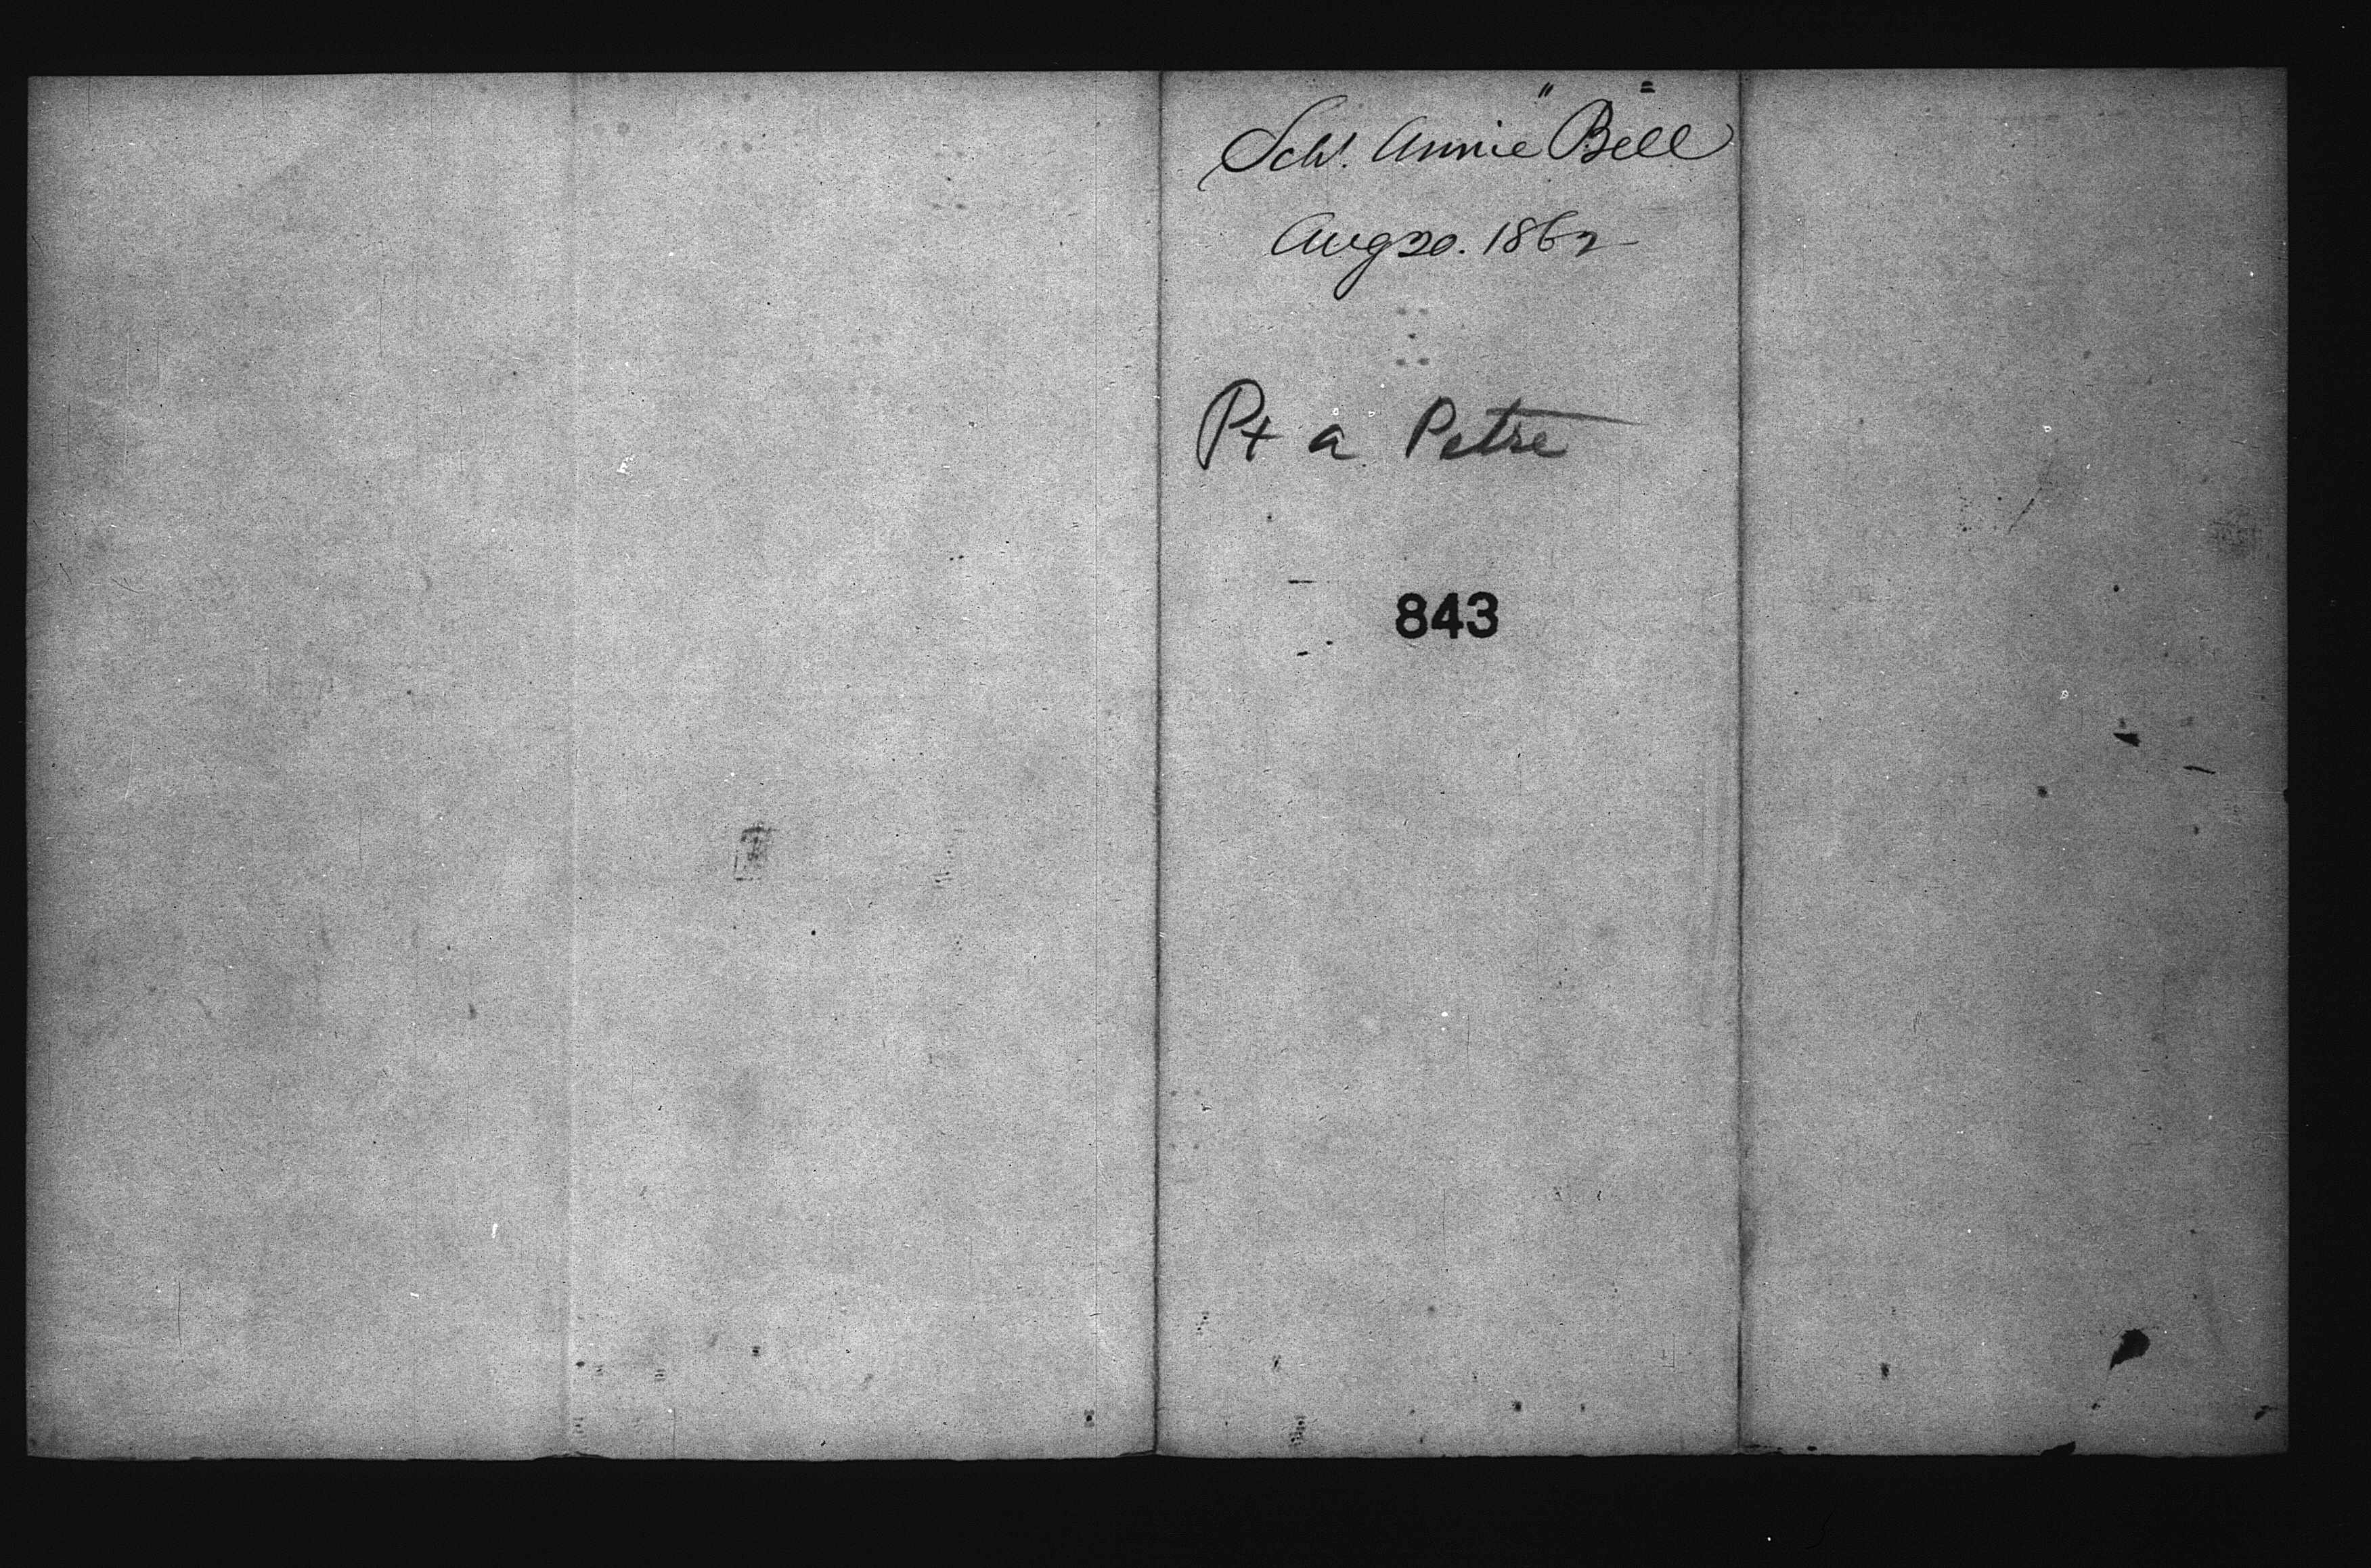 Schr. Annie Bell
Aug 20. 1862
Pt a Petre
843